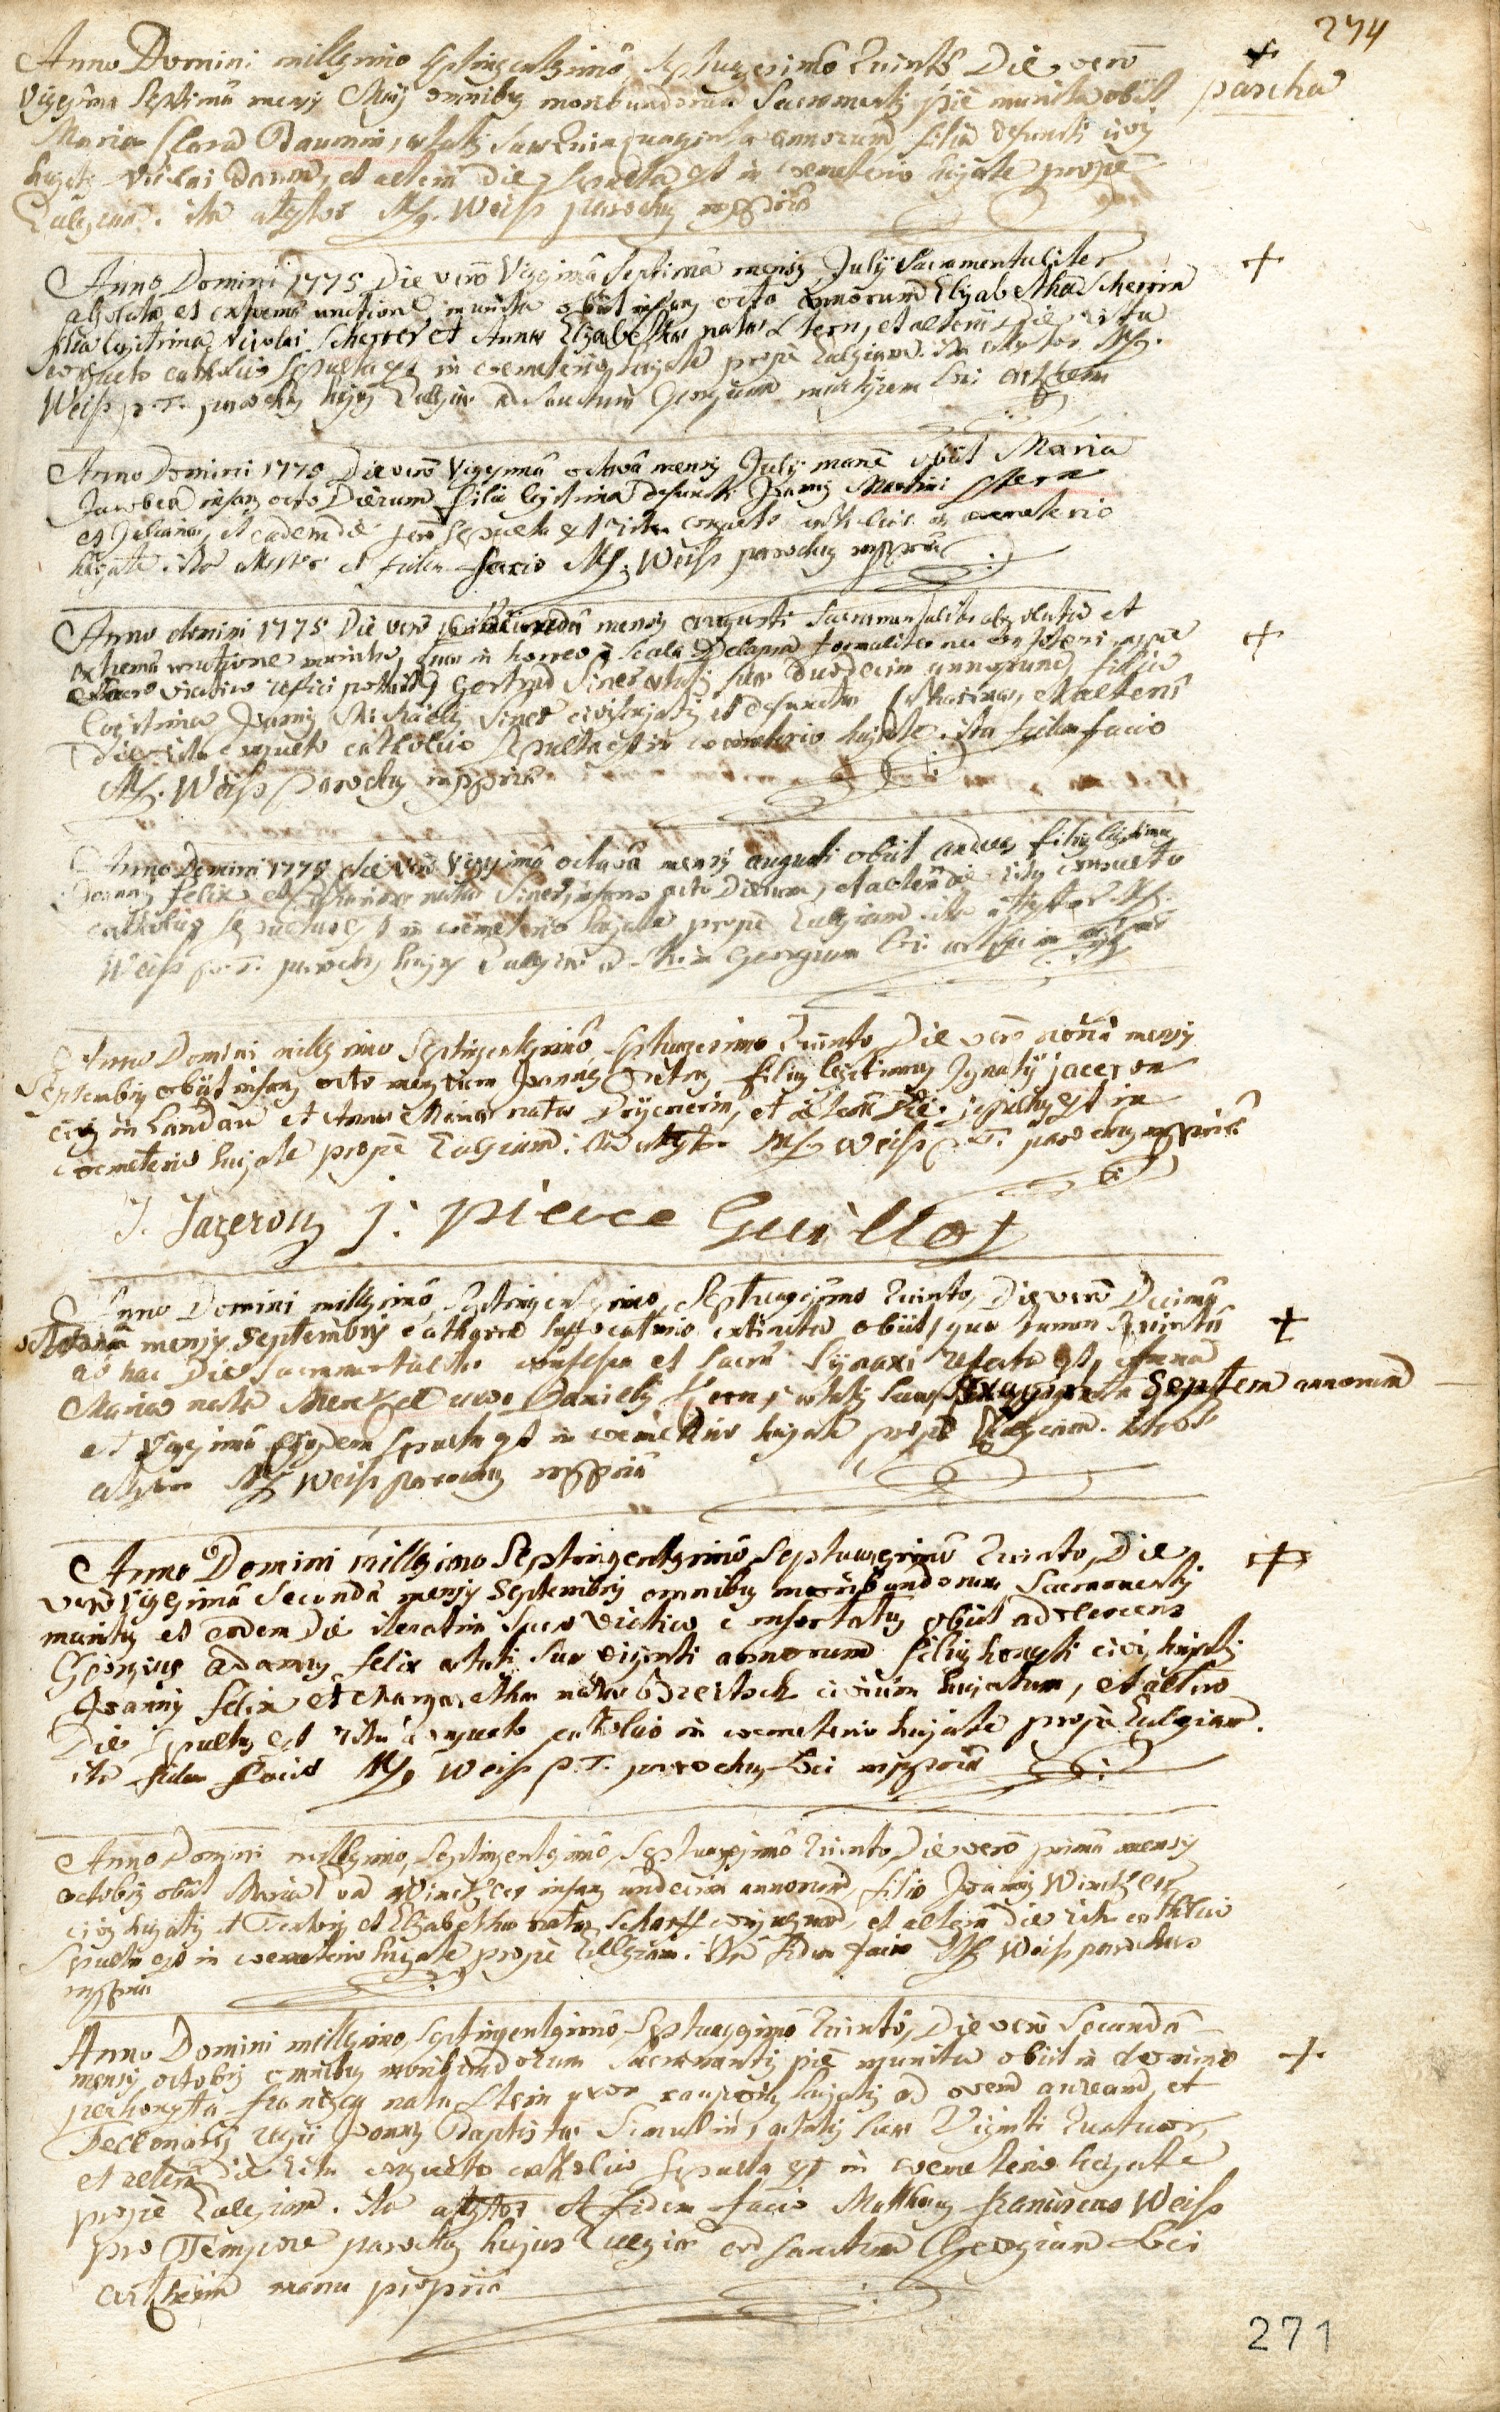 274
Anno Domini millesimo septingentesimo septuagesimo quinto Die vero
pascha
Vigesima Septima mensis Maij omnibus moribundorum Sacramentis pie munita obiit
Maria Clara Daumin, aetatis suae quinquaginta annorum filia defuncti civis
hujatis Nicolai Daum, et altera die sepulta est in coemeterio hujate prope
Ecclesiam. ita attestor Mf. Weiss parochus mppria
Anno Domini 1775 Die vero Vigesima Septima mensis Julij Sacramentaliter
absoluta et extrema unctione munita obiit infans octo annorum Elisabetha Scherrin
filia legitima Nicolai Scherrer et Annae Elisabethae natae Stern, et altera die ritu
consueto catholico sepulta est in coemeterio hujate prope Ecclesiam. ita attestor Mf.
Weiss p.T. parochus hujus Ecclesiae ad Sanctum Georgium martyrem loci artzheim
Anno Domini 1775 Die vero Vigesima octava mensis Julij mane obiit Maria
Jacobea infans octo Dierum filia legitima defuncti Joannis Martini Stern
et Julianae, et eadem die sero sepulta est ritu consueto catholico in coemeterio
hujate. ita attestor et fidem facio Mf. Weiss parochus mppria
Anno domini 1775 Die vero secunda mensis augusti Sacramentaliter absoluta et
extrema unctione munita, quae in horreo e scala Delapsa
sacro viatico refici potuit Gertrud Siner aetatis suae duodecim annorum filia
legitima Joannis Michaelis Siner civis hujatis et defunctae Catharinae, et altera
Die ritu consueto catholico sepulta est in coemeterio hujate. ita fidem facio
Mf. Weiss Parochus mppria
Anno Domini 1775 die vero Vigesima octava mensis augusti obiit andreas filius legitimus
Joannis Felix et Catharinae natae Siner, infans octo Dierum, et altera die ritu consueto
catholico sepultus est in coemeterio hujate prope Ecclesiam ita attestor Mf.
Weiss p.T. parochus hujus Ecclesiae ad Stum Georgium loci artzheim mppria
Anno Domini millesimo Septingentesimo, septuagesimo Quinto, Die vero nona mensis
Septembris obiit infans octo mensium Joannes Petrus filius legitimus Ignatij jaceron
civis in Landau et Annae Mariae natae, et altera Die sepultus est in
coemeterio hujate prope Ecclesiam. ita attestor Mf. Weiss p.T. parochus mppria
J. Jazeron j: pierce Guillot
Anno Domini millesimo, Septingentesimo, Septuagesimo Quinto, Die vero Decima
octava mensis Septembris catharro suffocativo extincta obiit, quae tamen Quinta
ab hac Die sacramentaliter confessa et sacra Synaxi refecta est, Anna
Maria nata Merckel uxor Danielis Kern, aetatis suae Sexaginta Septem annorum
et Vigesima Ejusdem sepulta est in coemeterio hujate prope Ecclesiam. ita
attestor Mf. Weiss parochus mppria
Anno Domini millesimo Septingentesimo, Septuagesimo Quinto, Die
vero Vigesima Secunda mensis Septembris omnibus moribundorum Sacramentis
munitus et eodem Die iteratim sacro viatico confortatus obiit adolescens
Georgius adamus felix aetatis suae viginti annorum filius honesti civis hujatis
Joannis felix et Margarethae natae Breitsch civium hujatum, et altero
Die sepultus est ritu consueto catholico in coemeterio hujate prope Ecclesiam.
ita fidem facio Mf. Weiss p.T. parochus loci mppria
Anno Domini millesimo, Septingentesimo, Septuagesimo Quinto, Die vero prima mensis
octobris obiit Maria Eva Winckler infans undecim annorum, filia Joannis Winckler
civis hujatis et et Elisabethae natae Scharff conjugum, et altera Die ritu catholico
sepulta est in coemeterio hujate prope Ecclesiam. ita fidem facio Mf. Weiss parochus
mppria
Anno Domini millesimo, Septingentesimo, Septuagesimo Quinto, Die vero Secunda
mensis octobris omnibus moribundorum Sacramentis pie munita obiit in domino
perhonesta francisca nata Stern uxor cauponis hujatis ad ovem auream, et
Teclonarij regii Joannis Baptistae Simullin, aetatis suae Viginti Quatuor,
et altera Die ritu consueto catholico Sepulta est in coemeterio hujate
prope Ecclesiam. ita attestor et fidem facio Matthaeus franciscus Weiss
pro Tempore parochus hujus Ecclesiae ad Sanctum Georgium Loci
artzheim manu propria
271